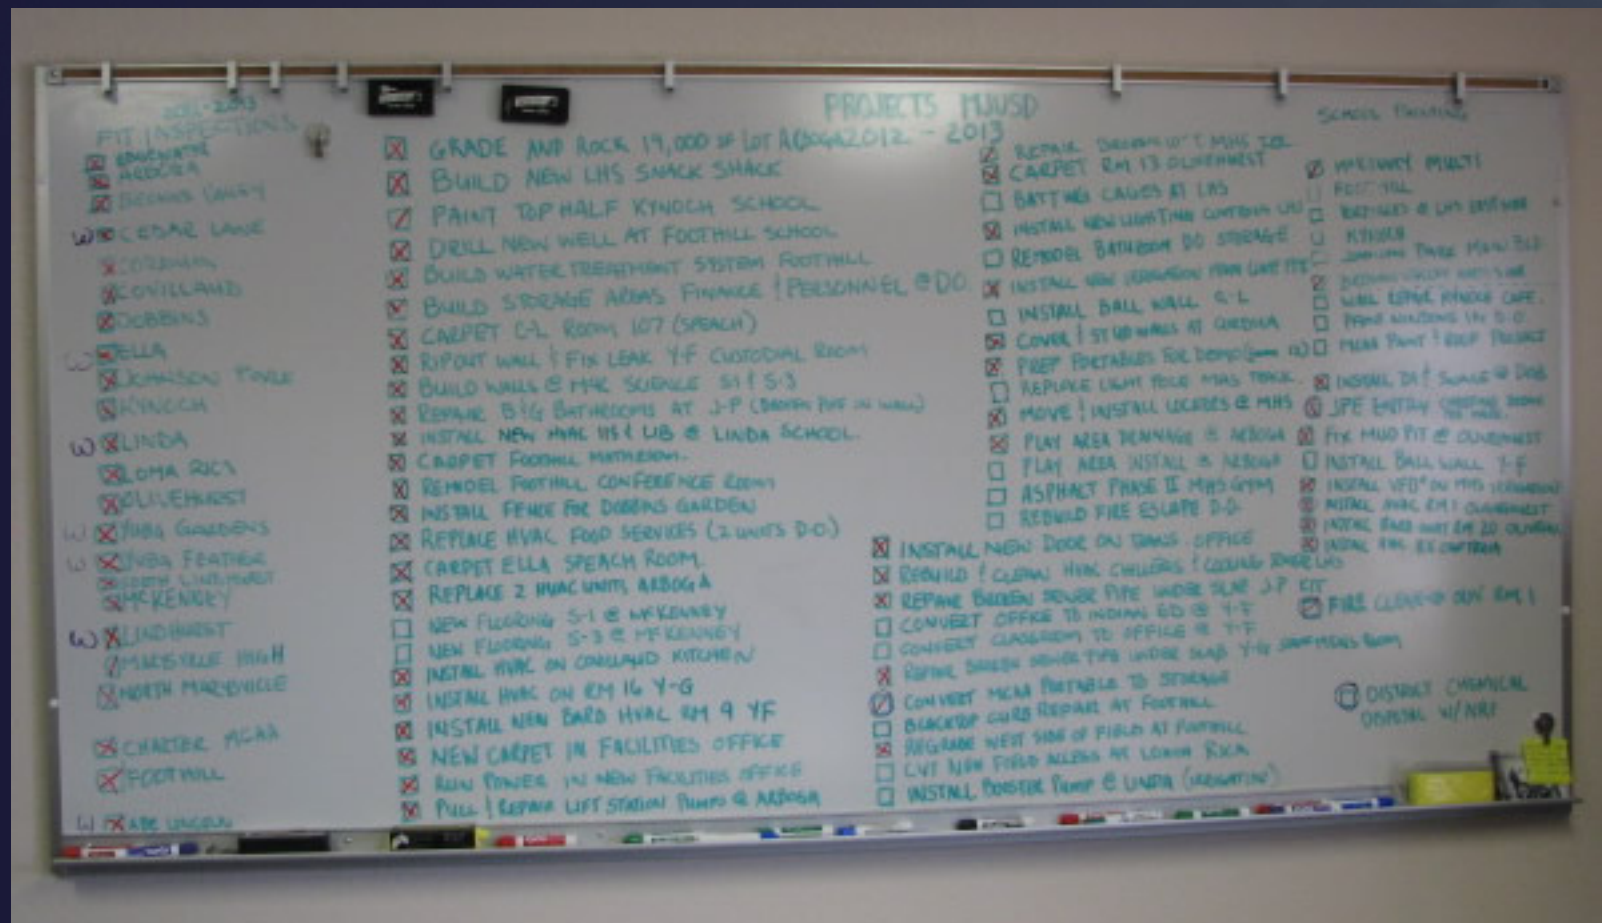 2012-2013
FIT INSPECTIONS
EDGEWATER
ARBOGA
BROWNS VALLEY
W CEDAR LANE
CORDUA
COVILLAUD
DOBBINS
W ELLA
JOHNSON PARK
KYNOCH
W LINDA
LOMA RICA
OLIVEHURST
W YUBA GARDENS
W YUBA FEATHER
SOUTH LINDHURST
MCKENNEY
W LINDHURST
MARYSVILLE HIGH
NORTH MARYSVILLE
CHARTER MCAA
FOOTHILL
W ABE LINCOLN
PROJECTS MJUSD
2012 - 2013
GRADE AND ROCK 19,000 SF LOT ARBOGA
BUILD NEW LHS SNACK SHACK
PAINT TOP HALF KYNOCH SCHOOL
DRILL NEW WELL AT FOOTHILL SCHOOL
BUILD WATER TREATMENT SYSTEM FOOTHILL
BUILD STORAGE AREAS FINANCE & PERSONNEL @ D.O.
CARPET C-L ROOM 107 (SPEACH)
RIPOUT WALL & FIX LEAK Y-F CUSTODIAL ROOM
BUILD WALLS @ MCK SCIENCE S-1 & S-3
REPAIR B&G BATHROOMS AT J-P (BROKEN PIPE IN WALL)
INSTALL NEW HVAC & LIB @ LINDA SCHOOL
CARPET FOOTHILL
REMODEL FOOTHILL CONFERENCE ROOM
INSTALL FENCE FOR DOBBINS GARDEN
REPLACE HVAC FOOD SERVICES (2 UNITS D.O.)
CARPET ELLA SPEACH ROOM
REPLACE 2 HVAC UNITS ARBOGA
NEW FLOORING S-1 @ MCKENNEY
NEW FLOORING S-3 @ MCKENNEY
INSTALL HVAC ON COVILLAUD KITCHEN
INSTALL HVAC ON RM 16 Y-G
INSTALL NEW BARD HVAC RM 9 YF
NEW CARPET IN FACILITIES OFFICE
RUN POWER IN NEW FACILITIES OFFICE
PULL & REPAIR LIFT STATION PUMPS @ ARBOGA
REPAIR MHS
CARPET RM 13 OLIVEHURST
BATTING CAGES AT LHS
INSTALL NEW LIGHTING LHS
REMODEL BATHROOM DO STORAGE
INSTALL NEW IRRIGATION
INSTALL BALL WALL C-L
COVER & STUB WALLS AT CORDUA
PREP PORTABLES FOR DEMO
REPLACE LIGHT POLE MHS TRACK
MOVE & INSTALL LOCKERS @ MHS
PLAY AREA DRAINAGE @ ARBOGA
PLAY AREA INSTALL @ ARBOGA
ASPHALT PHASE II MHS GYM
REBUILD FIRE ESCAPE D.O.
INSTALL NEW DOOR ON TRANS. OFFICE
REBUILD & CLEAN HVAC CHILLERS & COOLING TOWER LHS
REPAIR BROKEN SEWER PIPE UNDER SLAB J-P KIT
CONVERT OFFICE TO INDIAN ED @ Y-F
CONVERT CLASSROOM TO OFFICE @ Y-F
REPAIR BROKEN SEWER PIPE UNDER SLAB Y-G MENS ROOM
CONVERT MCAA PORTABLE TO STORAGE
BLACKTOP CURB REPAIR AT FOOTHILL
REGRADE WEST SIDE OF FIELD AT FOOTHILL
CUT NEW FIELD ACCESS AT LOMA RICA
INSTALL BOOSTER PUMP @ LINDA (IRRIGATION)
SCHOOL PAINTING
MCKENNEY MULTI
FOOTHILL
@ LHS
KYNOCH
JOHNSON PARK MAIN BLD
BROWNS VALLEY
WALL REPAIR KYNOCH CAFE.
PAINT WINDOWS IN D.O.
MCAA PAINT & ROOF PROJECT
INSTALL DI & SWALE @ DOB
SPE ENTRY
FIX MUD PIT @ OLIVEHURST
INSTALL BALL WALL Y-F
INSTALL VFD ON MHS IRRIGATION
INSTALL HVAC RM 1 OLIVEHURST
INSTALL BARD UNIT RM 20
INSTALL
FIRE CLEAN-UP OLIV RM 1
DISTRICT CHEMICAL
DISPOSAL W/